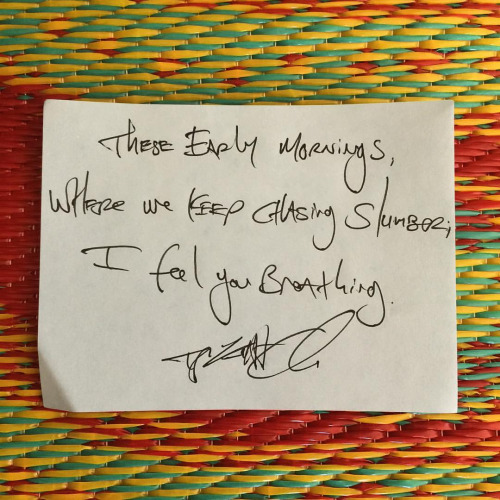 These Early Mornings,
Where we keep chasing slumber;
I feel you Breathing.